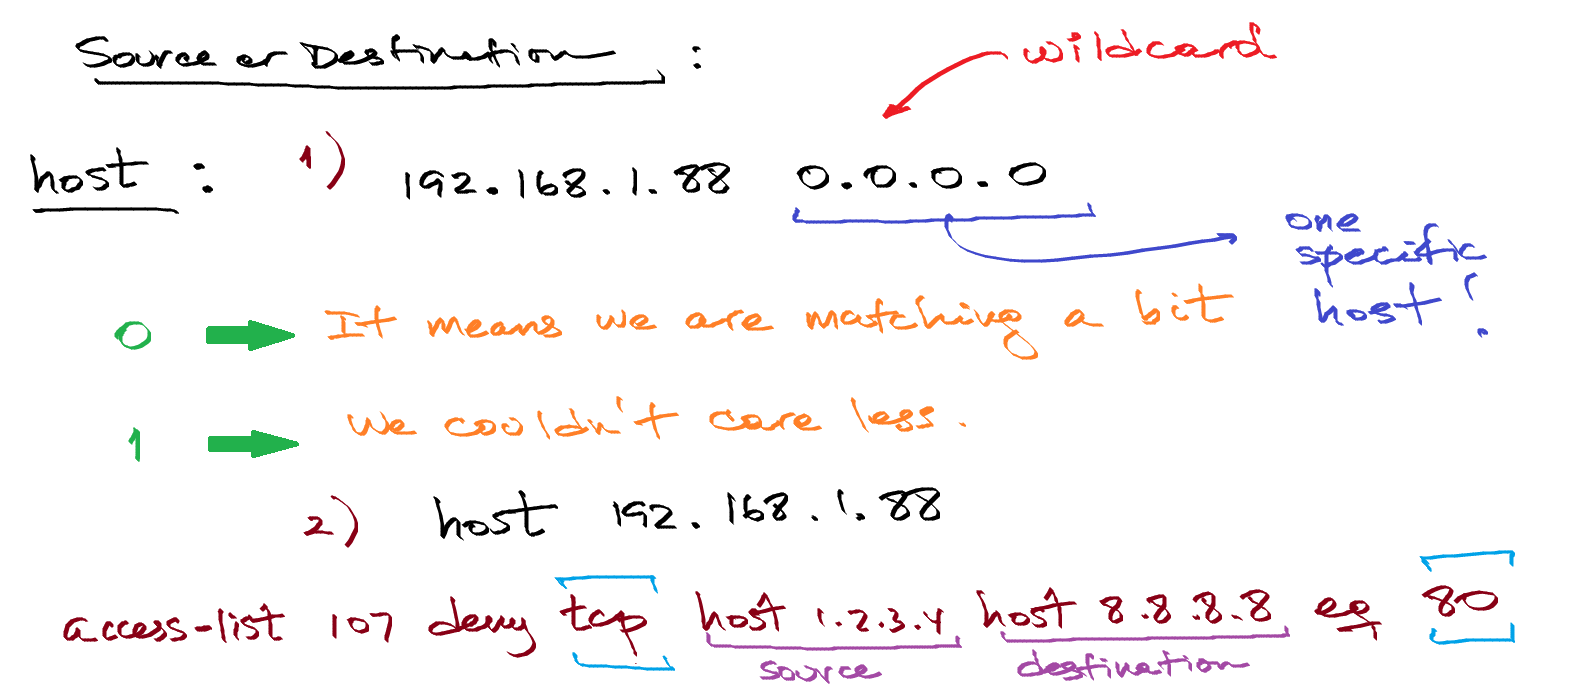 Source or Destination :
wildcard
host : 1) 192.168.1.88 0.0.0.0
one
specific
host!
0 It means we are matching a bit
1 We couldn't care less.
2) host 192.168.1.88
access-list 107 deny tcp host 1.2.3.4 host 8.8.8.8 eq 80
source destination